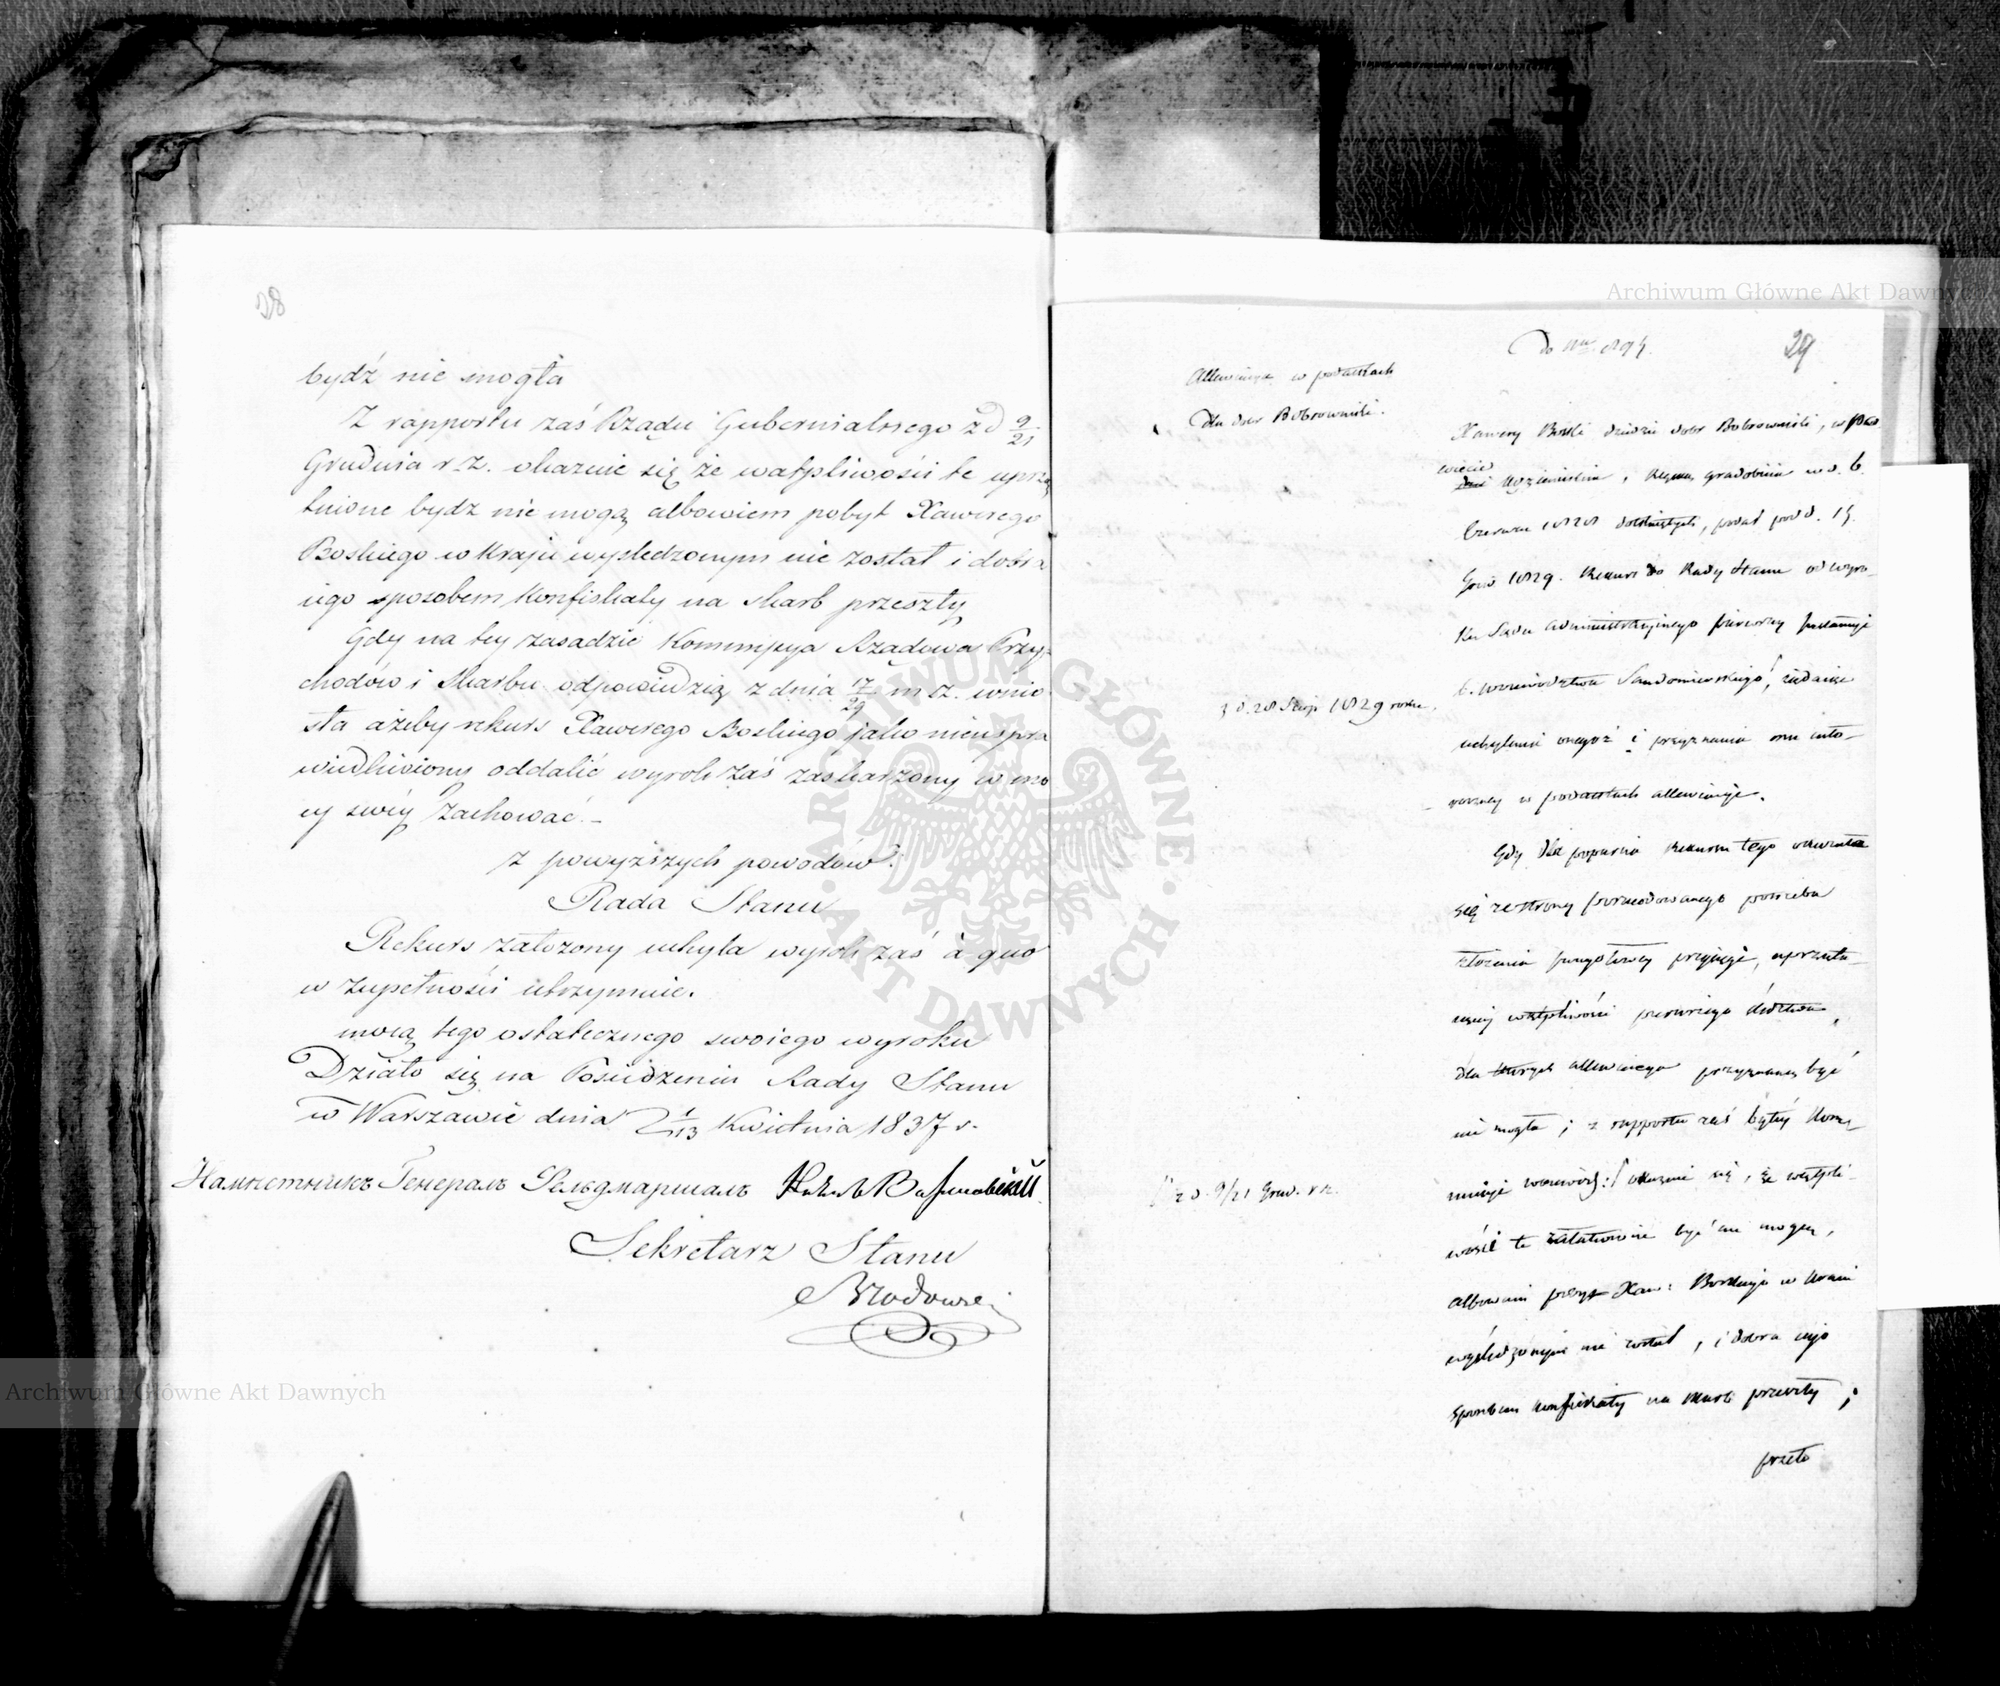 28
bydź nie mogła
Z rapportu zaś Rządu Gubernialnego z d 9/21
Grudnia r. z. okazuie się że wątpliwości te uprzą
tnione bydz nie mogą albowiem pobyt Xawerego
Boskiego w Kraju wyśledzonym nie został i dobra
iego sposobem Konfiskaty na skarb przeszły
Gdy na tey zasadzie Kommissya Rządowa Przy
chodów i Skarbu odpowiedzią z dnia 17/29 m. z. wnio
sła ażeby rekurs Xawerego Boskiego jako nieuspra
wiedliwiony oddalić wyrok zaś zaskarzony w mo
cy swéy zachować. –
z powyższych powodów.
Rada Stanu
Rekurs założony uchyla wyrok zaś à quo
w zupełności utrzymuie.
mocą tego ostatecznego swoiego wyroku
Działo się na Posiedzeniu Rady Stanu
w Warszawie dnia 1/13 Kwietnia 1837 r.
Намѣстникъ Генералъ Фельдмаршалъ
Sekretarz Stanu
29
Do
Allewiacya w podatkach
dla dobr Bobrowniki.
Xawery Boski dziedzic dobr Bobrowniki, w pow
wiecie
Czerwca 1828 dotkniętych, podał pod d. 15
Grud 1829. Rekurs do Rady Stanu od wyro-
ku Sądu Administracyjnego pierwszej Instancyi
b. Województwa Sandomierskiego, żądaiąc
z d. 28 Sierp 1829 roku,
uchylenia onegoż i przyznania mu cało-
w podatkach allewiacyi.
Gdy dla poparcia rekursu tego okazała
się ze strony potrzeba
złożenia przysięgi, uprząta-
iącej wątpliwości pierwszego śledztwa,
dla których allewiacya przyznaną być
nie mogła; z rapportu zaś byłej Kom-
missyi woiewódz: okazuie się, że wątpli-
z d. 9/21 Grud. r. z.
wości te załatwione być nie mogą,
albowiem pobyt Xaw: Boskiego w kraiu
wyśledzonym nie został, i dobra iego
sposobem konfiskaty na skarb przeszły;
przeto
Archiwum Główne Akt Dawnych
Archiwum Główne Akt Dawnych
ARCHIWUM GŁÓWNE AKT DAWNYCH